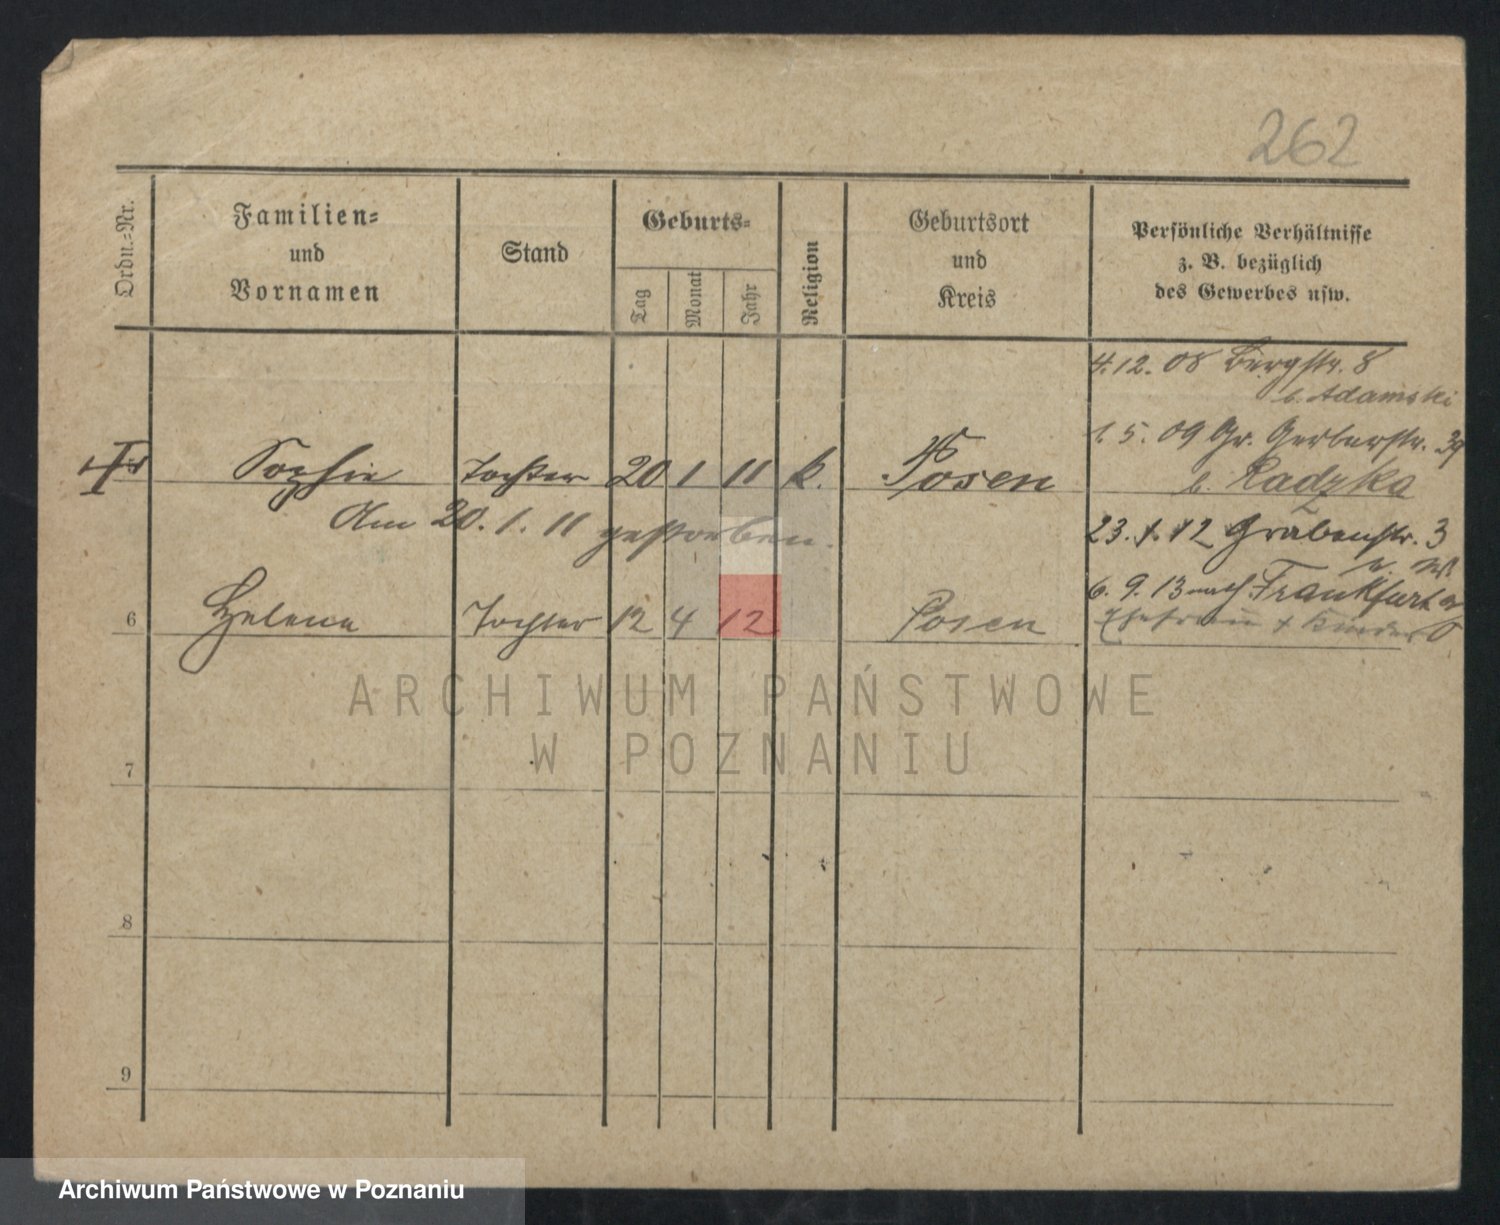 262
Ordn.-Nr.
Familien-
und
Vornamen
Stand
Geburts-
Tag
Monat
Jahr
Religion
Geburtsort
und
Kreis
Persönliche Verhältnisse
z. B. bezüglich
des Gewerbes usw.
4.12. 08 Bergstr. 8
b. Adamski
1. 5. 09 Gr. Gerberstr. 39
b. Radzka
Sophie Tochter 20 1 11 k. Posen
Am 20. 1. 11 gestorben.
23. 1. 12 Grabenstr. 3
6. 9. 13 nach Frankfurt a/O
Ehefrau + Kinder
6 Helene Tochter 12 4 12 Posen
ARCHIWUM PAŃSTWOWE
W POZNANIU
7
8
9
Archiwum Państwowe w Poznaniu